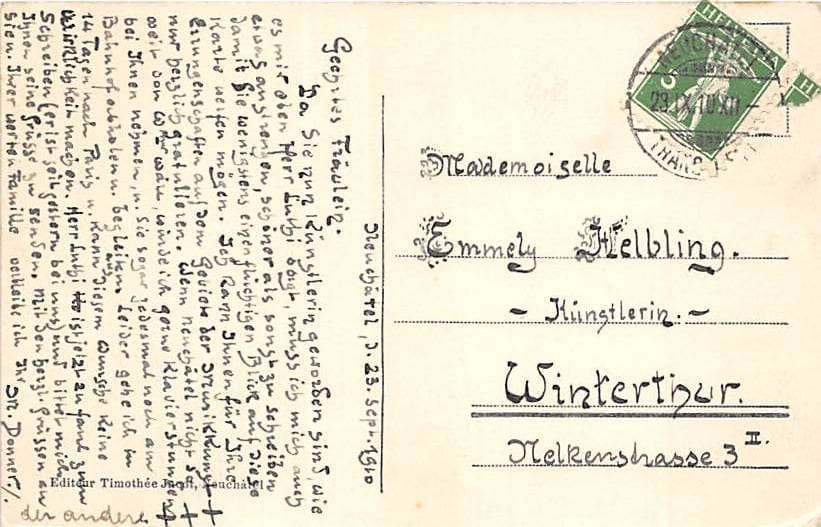 Neuchâtel, d. 23. Sept. 1910
Geehrtes Fräulein.
Da Sie nun Künstlerin geworden sind, wie
es mir eben Herr Luthi sagt, muss ich mich auch
etwas anstrengen, schöner als sonst zu schreiben
damit Sie wenigstens einen flüchtigen Blick auf diese
Karte werfen mögen. Ich kann Ihnen für Ihre
Errungenschaften auf dem Gebiete der Musikkunst
nur herzlich gratulieren. Wenn Neuchâtel nicht so
weit von W'thur wäre, würde ich gerne Klavierstunden
bei Ihnen nehmen, u. Sie sogar jedesmal noch am
Bahnhof abholen u. begleiten. Leider gehe ich in
14 Tagen nach Paris u. kann diesem Wunsche keine
Wirklichkeit machen. Herr Luthi ist jetzt zu faul zum
Schreiben (er ist seit gestern bei uns) und bittet mich
Ihnen seine Grüsse zu senden. Mit den herzl. Grüssen an
Sie u. Ihrer werten Familie verbleibe ich Ihr
M. Donner ./.
der andere
Editeur Timothée Jacot, Neuchâtel
HELVETIA
5
NEUCHATEL
23.IX.10.XII
Mademoiselle
Emmely Helbling.
- Künstlerin. -
Winterthur.
Nelkenstrasse 3 II.